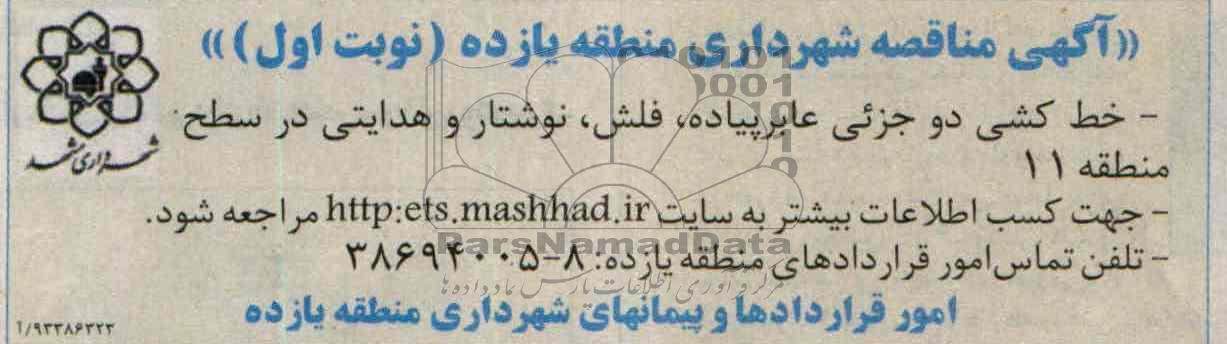 «آگهی مناقصه شهرداری منطقه یازده (نوبت اول)»
- خط کشی دو جزئی عابرپیاده، فلش، نوشتار و هدایتی در سطح
منطقه ۱۱
- جهت کسب اطلاعات بیشتر به سایت http:ets.mashhad.ir مراجعه شود.
- تلفن تماس امور قراردادهای منطقه یازده: ۸-۳۸۶۹۴۰۰۵
امور قراردادها و پیمانهای شهرداری منطقه یازده
شهرداری مشهد
۱/۹۳۳۸۶۳۲۳
ParsNamadData
مرکز فرآوری اطلاعات پارس نماد داده ها